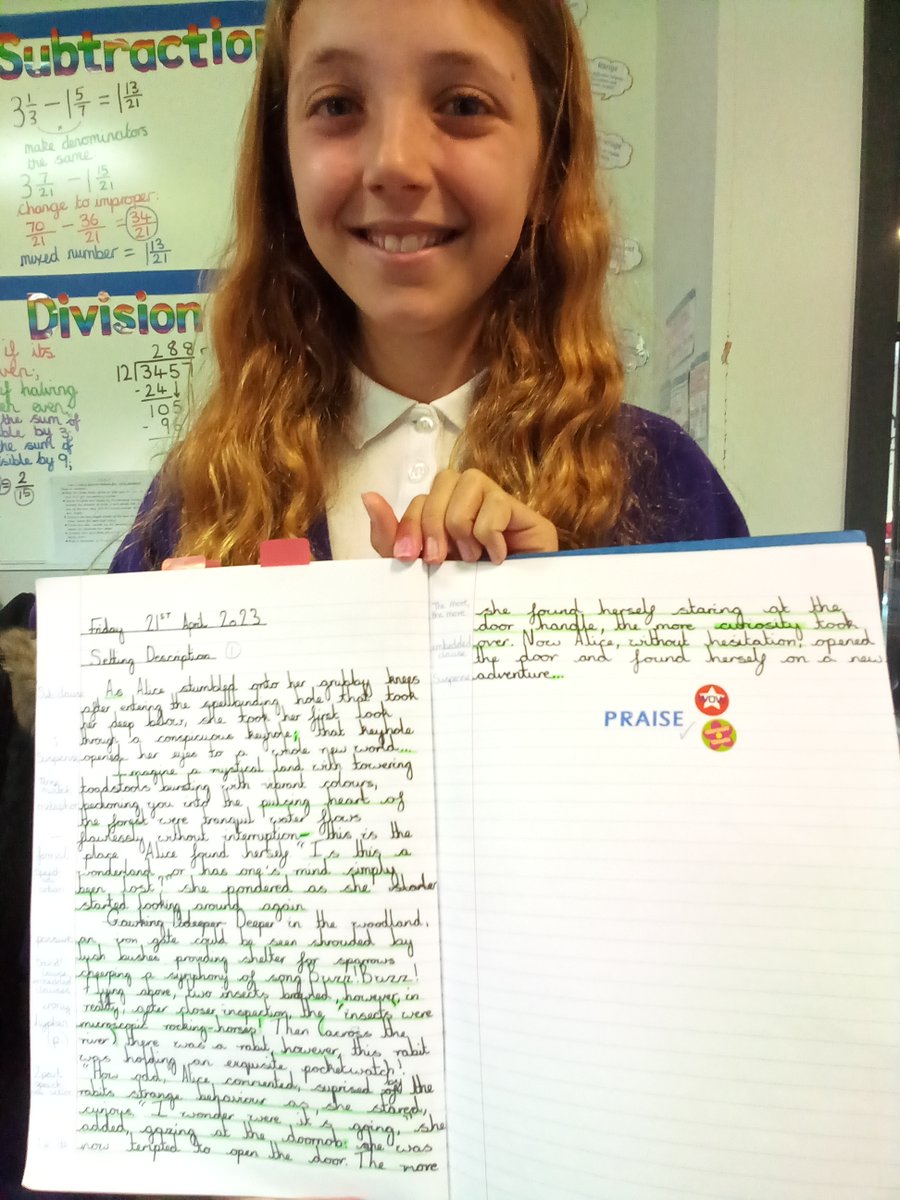 Subtraction
3 1/3 - 1 5/7 = 1 13/21
make denominators
the same
3 7/21 - 1 15/21
change to improper.
70/21 - 36/21 = 34/21
mixed number = 1 13/21
Division
if its
ven,
if halving
en even,
the sum of
ible by 3
he sum of
isible by 9,
2/15
288
12 3457
-24
105
- 96
Friday 21ST April 2023
Setting Description 1
As Alice stumbled onto her grubby knees
after entering the spellbinding hole that took
her deep below, she took her first look
through a conspicuous keyhole; that keyhole
opened her eyes to a whole new world...
Imagine a mystical land with towering
toadstools bursting with vibrant colours,
beckoning you into the pulsing heart of
the forest were tranquil water flows
flawlessly without interruption- this is the
place Alice found herself "Is this a
wonderland, or has one's mind simply
been lost?" she pondered as she
started looking around again
Gawking Deeper in the woodland,
an iron gate could be seen shrouded by
lush bushes providing shelter for sparrows
cheeping a symphony of song Buzz! Buzz!
Flying above, two insects however, in
reality, after closer inspection, the "insects were
microscopic rocking-horses! Then (across the
river) there was a rabit, however, this rabit
was holding an exquisite pocketwatch!
"How odd, Alice commented, suprised by the
rabits strange behaviour as, she stared,
"I wonder were it is going," she
added, gazing at the doornob: she was
now tempted to open the door. The more
The more,
the more
embedded
clause
Suspense
she found herself staring at the
door handle, the more curiosity took
over. Now Alice, without hesitation, opened
the door and found herself on a new
adventure...
PRAISE
WOW
suspense
metaphor